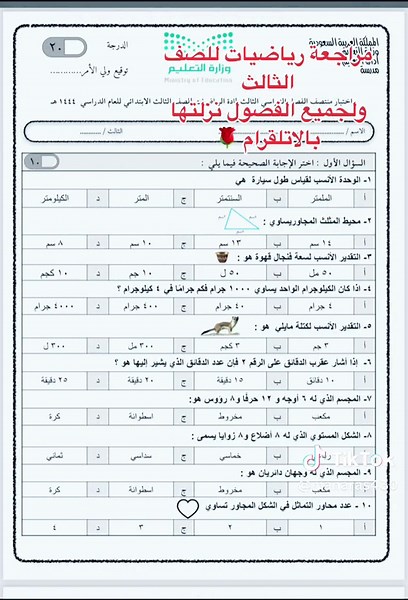 المملكة العربية السعودية
وزارة التعليم
Ministry of Education
الدرجة
٢٠
توقيع ولي الأمر............
مراجعة رياضيات للصف
الثالث
ولجميع الفصول نزلتها
بالاتلقرام
الثالث الابتدائي للعام الدراسي ١٤٤٤ هـ
الاسم /
الثالث /
السؤال الأول : اختر الإجابة الصحيحة فيما يلي :
١٠
١- الوحدة الأنسب لقياس طول سيارة هي
أ الملمتر ب السنتمتر ج المتر د الكيلومتر
٢- محيط المثلث المجاوريساوي :
أ ١٤ سم ب ١٣ سم ج ١٠ سم د ٨ سم
٣- التقدير الأنسب لسعة فنجال قهوة هو :
أ ٥٠ مل ب ٥٠ ل ج ١٠ جم د ١٠ كجم
٤- اذا كان الكيلوجرام الواحد يساوي ١٠٠٠ جرام فكم جرامًا في ٤ كيلوجرام ؟
أ ٤ جرام ب ٤٠ جرام ج ٤٠٠ جرام د ٤٠٠٠ جرام
٥- التقدير الأنسب لكتلة مايلي هو :
أ ٣ جم ب ٣ كجم ج ٣٠٠ مل د ٣٠٠ ل
٦- إذا أشار عقرب الدقائق على الرقم ٢ فإن عدد الدقائق الذي يشير إليها هو ؟
أ ١٠ دقائق ب ١٥ دقيقة ج ٢٠ دقيقة د ٢٥ دقيقة
٧- المجسم الذي له ٦ أوجه و ١٢ حرفًا و ٨ رؤوس هو:
أ مكعب ب مخروط ج اسطوانة د كرة
٨- الشكل المستوي الذي له ٨ أضلاع و ٨ زوايا يسمى :
أ ب خماسي ج سداسي د ثماني
٩- المجسم الذي له وجهان دائريان هو :
أ مكعب ب مخروط ج اسطوانة د كرة
١٠ - عدد محاور التماثل في الشكل المجاور تساوي
أ ١ ب ٢ ج ٣ د ٤
TikTok